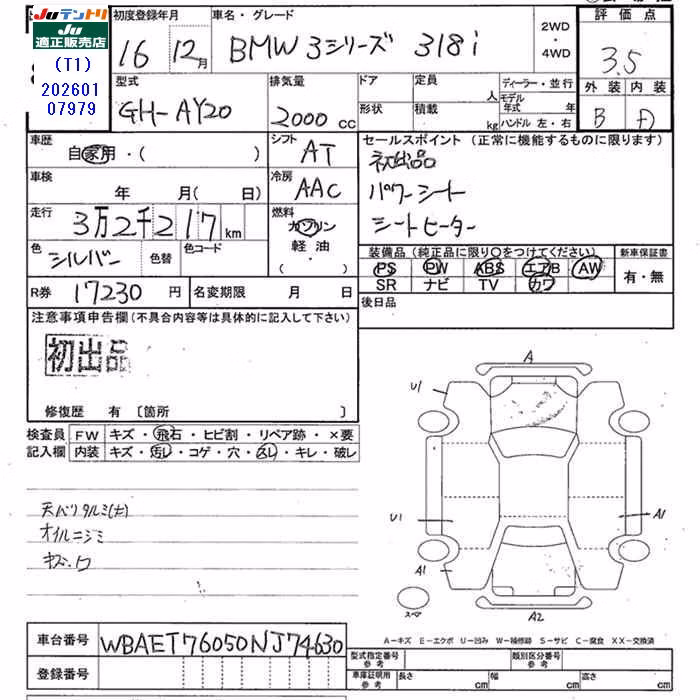 Juテントリ
Ju
適正販売店
(T1)
202601
07979
初度登録年月
16 12月
車名・グレード
BMW 3シリーズ 318i
2WD
・
4WD
評価点
3.5
外装 内装
B D
型式
GH-AY20
排気量
2000 CC
ドア
形状
定員 人
積載 kg
ディーラー・並行
モデル年式 年
ハンドル 左・右
車歴
自家用・( )
シフト
AT
セールスポイント (正常に機能するものに限ります)
初出品
パワーシート
シートヒーター
車検
年 月(日)
冷房
AAC
走行
3万2千217 km
燃料
ガソリン
軽油
( ・ )
色
シルバー
色替
色コード
装備品 (純正品に限り○をつけてください)
新車保証書
PS PW ABS エアB AW
SR ナビ TV カワ
有・無
R券 17230 円
名変期限 月 日
後日品
注意事項申告欄(不具合内容等は具体的に記入して下さい)
初出品
修復歴 有 〔箇所 〕
検査員
記入欄
FW キズ・飛石・ヒビ割・リペア跡・×要
内装 キズ・汚レ・コゲ・穴・スレ・キレ・破レ
天バリタルミ(大)
オイルニジミ
キズ・凹
A
U1
U1
A1
A1
A2
スペア
A-キズ E-エクボ U-凹み W-補修跡 S-サビ C-腐食 XX-交換済
車台番号 WBAET76050NJ74630
登録番号
型式指定番号
参考
類別区分番号
参考
車庫証明用
参考
長さ cm
幅 cm
高さ cm